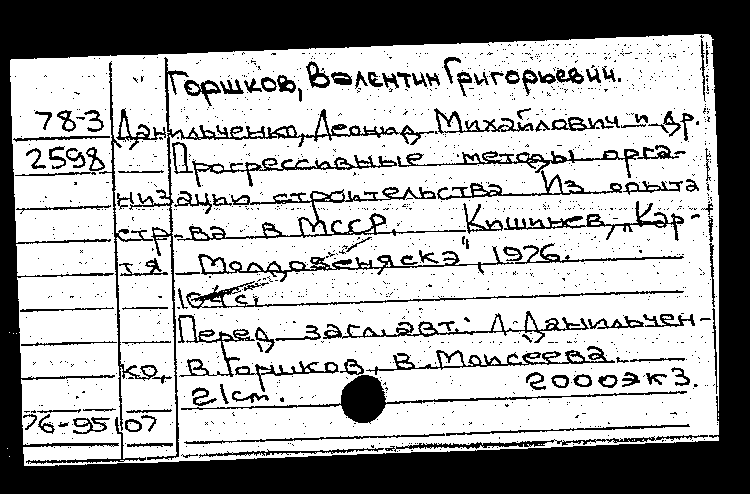 Горшков, Валентин Григорьевич.
78-3 Данильченко, Леонид Михайлович и др.
2598 Прогрессивные методы орга-
низации строительства Из опыта
стр-ва в МССР. Кишинев, "Кар-
тя Молдовеняскэ", 1976.
104 с.
Перед загл. авт.: Л. Данильчен-
ко, В. Горшков, В. Моисеева.
21 cm. 2000экз.
76-95107